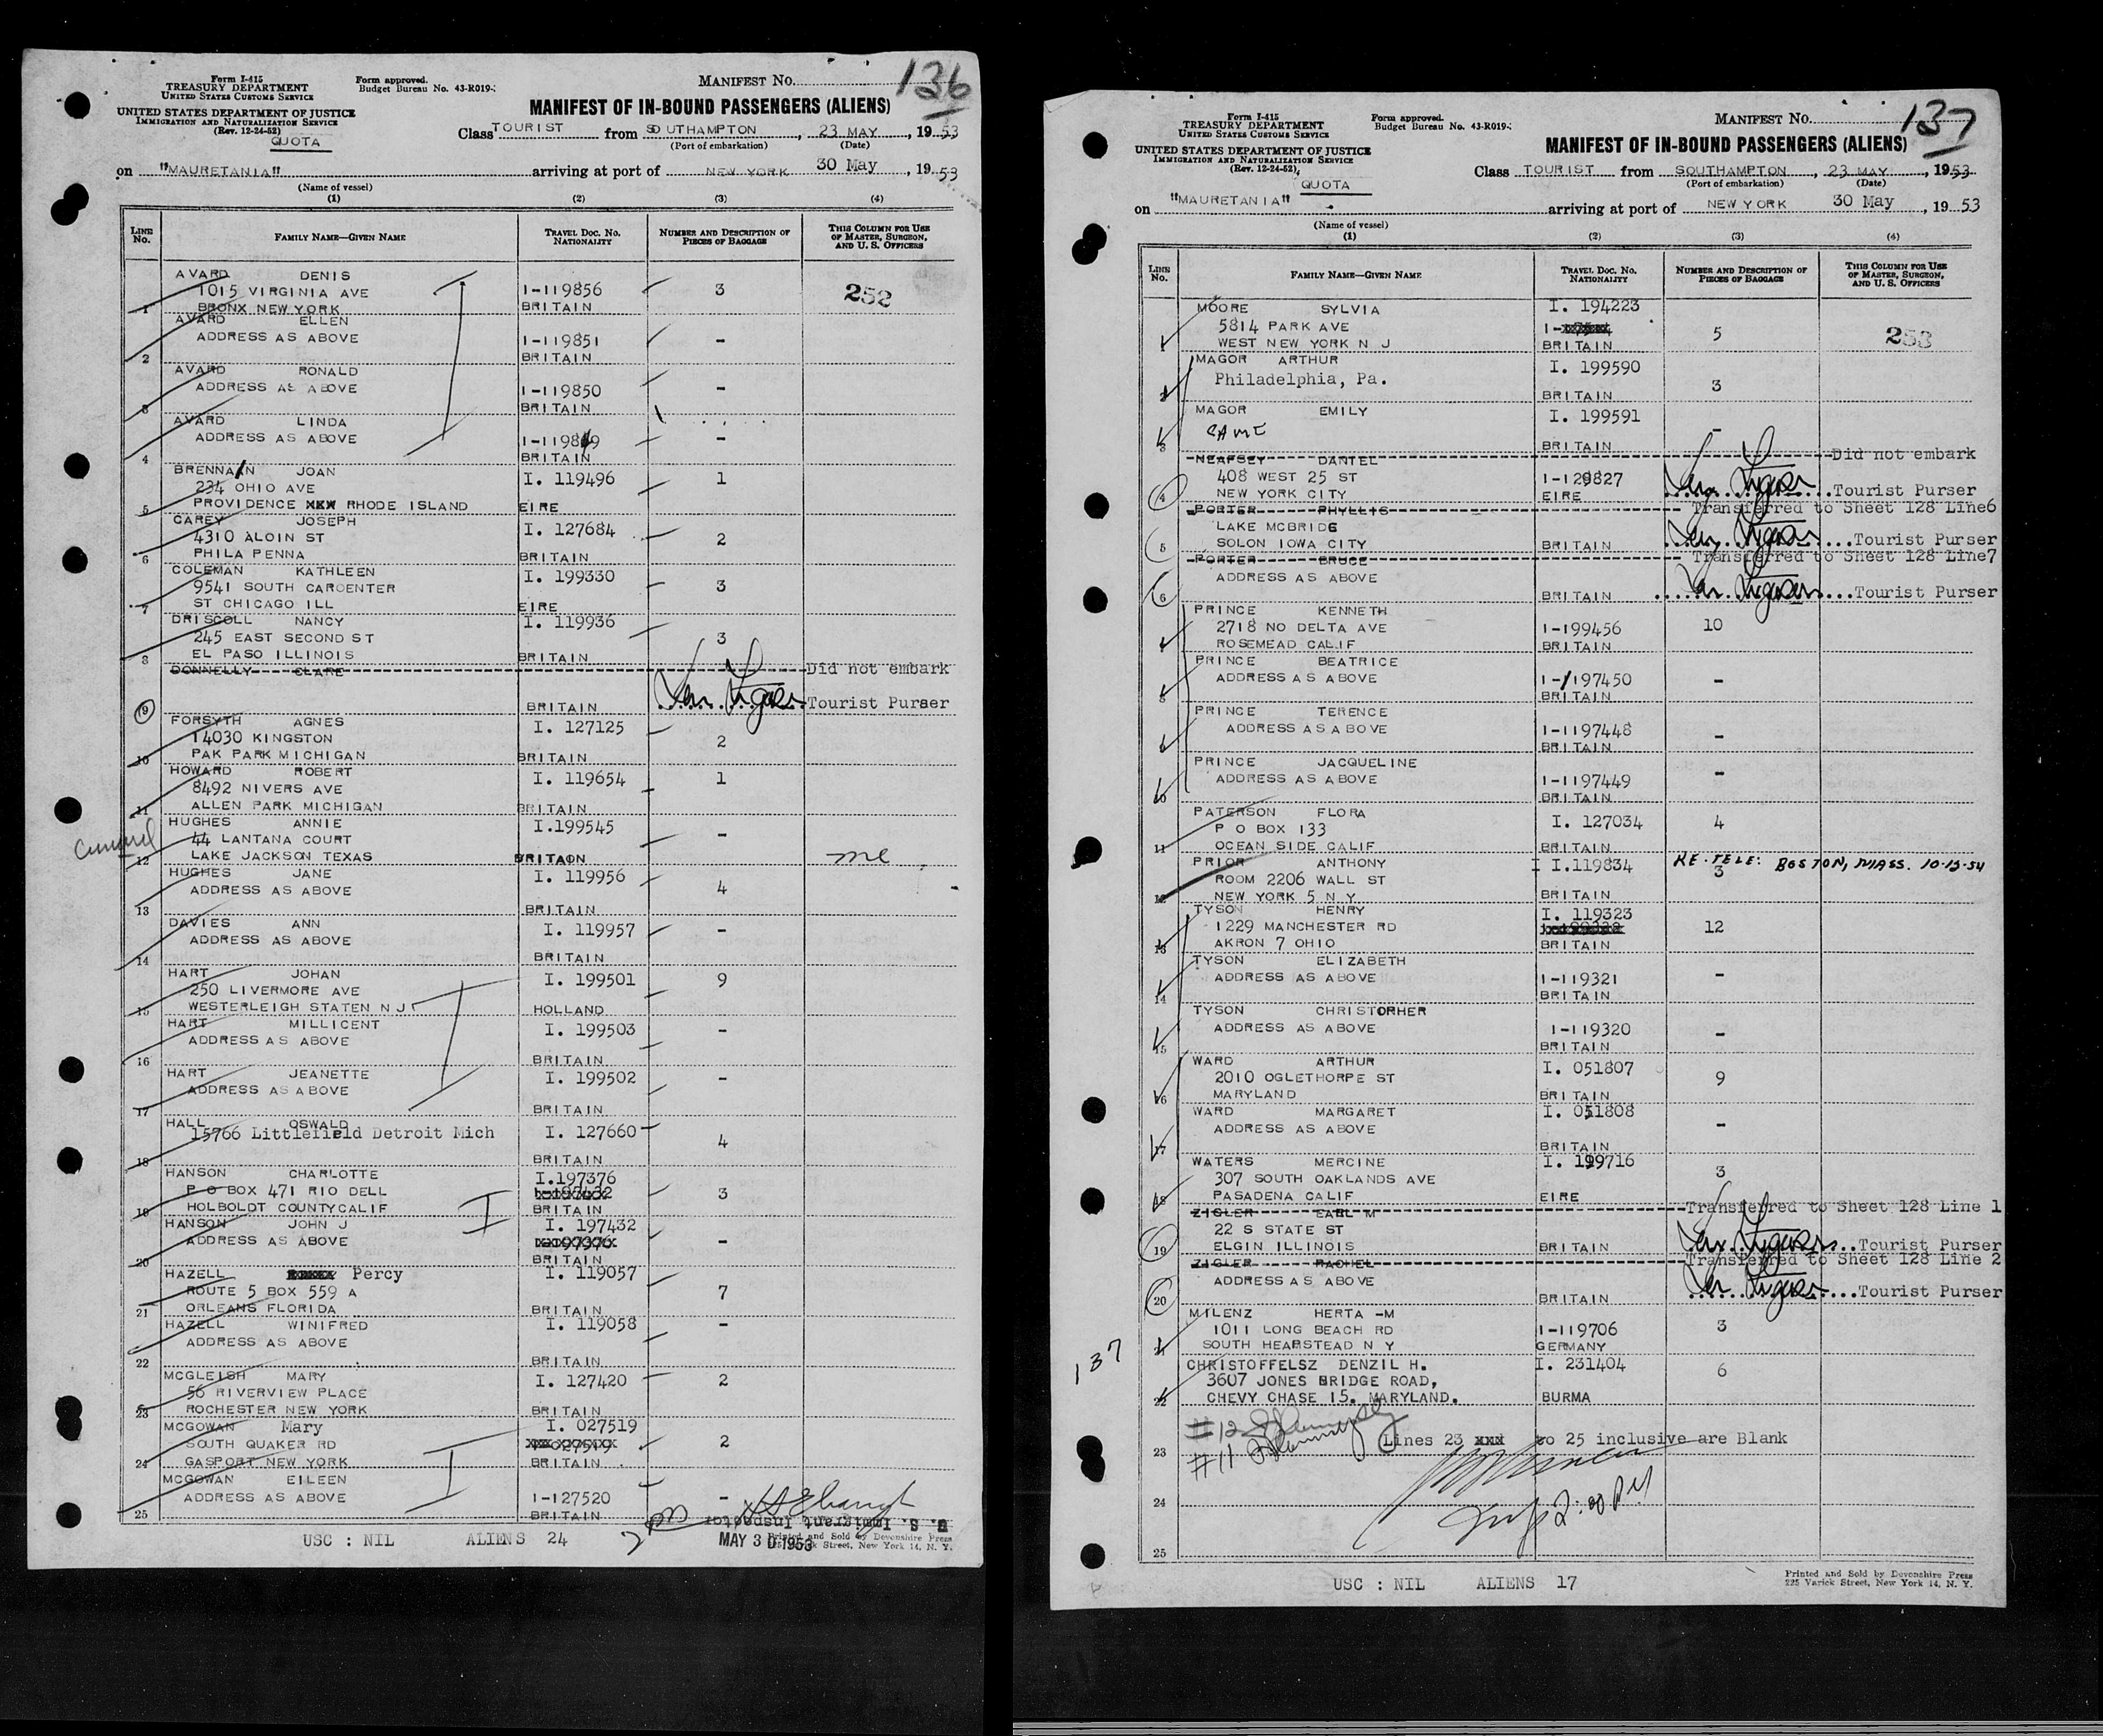 Form I-415
TREASURY DEPARTMENT
UNITED STATES CUSTOMS SERVICE
UNITED STATES DEPARTMENT OF JUSTICE
IMMIGRATION AND NATURALIZATION SERVICE
(Rev. 12-24-52)
QUOTA
Form approved.
Budget Bureau No. 43-R019-
MANIFEST No. 136
MANIFEST OF IN-BOUND PASSENGERS (ALIENS)
Class TOURIST from SOUTHAMPTON, 23 MAY, 1953
(Port of embarkation) (Date)
on "MAURETANIA" arriving at port of NEW YORK 30 May, 1953
(Name of vessel)
(1) (2) (3) (4)
LINE No. FAMILY NAME—GIVEN NAME TRAVEL DOC. NO. NATIONALITY NUMBER AND DESCRIPTION OF PIECES OF BAGGAGE THIS COLUMN FOR USE OF MASTER, SURGEON, AND U. S. OFFICERS
AVARD DENIS
1015 VIRGINIA AVE I-119856 3 252
1 BRONX NEW YORK BRITAIN
AVARD ELLEN
ADDRESS AS ABOVE I-119851 -
2 BRITAIN
AVARD RONALD
ADDRESS AS ABOVE I-119850 -
3 BRITAIN
AVARD LINDA
ADDRESS AS ABOVE I-119849 -
4 BRITAIN
BRENNAN JOAN I. 119496 1
234 OHIO AVE
5 PROVIDENCE RHODE ISLAND EIRE
CAREY JOSEPH I. 127684
4310 ALOIN ST 2
6 PHILA PENNA BRITAIN
COLEMAN KATHLEEN I. 199330
9541 SOUTH CARCENTER 3
7 ST CHICAGO ILL EIRE
DRISCOLL NANCY I. 119936
245 EAST SECOND ST 3
8 EL PASO ILLINOIS BRITAIN
DONNELLY CLARE Did not embark
9 BRITAIN Tourist Purser
FORSYTH AGNES I. 127125
14030 KINGSTON 2
10 PAK PARK MICHIGAN BRITAIN
HOWARD ROBERT I. 119654 1
8492 NIVERS AVE
11 ALLEN PARK MICHIGAN BRITAIN
HUGHES ANNIE I.199545 -
44 LANTANA COURT
12 LAKE JACKSON TEXAS BRITAON
HUGHES JANE I. 119956
ADDRESS AS ABOVE 4
13 BRITAIN
DAVIES ANN I. 119957 -
ADDRESS AS ABOVE
14 BRITAIN
HART JOHAN I. 199501 9
250 LIVERMORE AVE
15 WESTERLEIGH STATEN N J HOLLAND
HART MILLICENT I. 199503 -
ADDRESS AS ABOVE
16 BRITAIN
HART JEANETTE I. 199502 -
ADDRESS AS ABOVE
17 BRITAIN
HALL OSWALD I. 127660
15766 Littlefield Detroit Mich 4
18 BRITAIN
HANSON CHARLOTTE I.197376
P O BOX 471 RIO DELL 3
19 HOLBOLDT COUNTY CALIF BRITAIN
HANSON JOHN J I. 197432
ADDRESS AS ABOVE -
20 BRITAIN
HAZELL Percy I. 119057
ROUTE 5 BOX 559 A 7
21 ORLEANS FLORIDA BRITAIN
HAZELL WINIFRED I. 119058 -
ADDRESS AS ABOVE
22 BRITAIN
MCGLEISH MARY I. 127420 2
56 RIVERVIEW PLACE
23 ROCHESTER NEW YORK BRITAIN
MCGOWAN Mary I. 027519
SOUTH QUAKER RD 2
24 GASPORT NEW YORK BRITAIN
MCGOWAN EILEEN
ADDRESS AS ABOVE I-127520 -
25 BRITAIN
U. S. Immigrant Inspector
USC : NIL ALIENS 24 MAY 30 1953
Printed and Sold by Devonshire Press
Street, New York 14, N. Y.
Form I-415
TREASURY DEPARTMENT
UNITED STATES CUSTOMS SERVICE
UNITED STATES DEPARTMENT OF JUSTICE
IMMIGRATION AND NATURALIZATION SERVICE
(Rev. 12-24-52)
QUOTA
Form approved.
Budget Bureau No. 43-R019-
MANIFEST No. 137
MANIFEST OF IN-BOUND PASSENGERS (ALIENS)
Class TOURIST from SOUTHAMPTON, 23 MAY, 1953
(Port of embarkation) (Date)
on "MAURETANIA" arriving at port of NEW YORK 30 May, 1953
(Name of vessel)
(1) (2) (3) (4)
LINE No. FAMILY NAME—GIVEN NAME TRAVEL DOC. NO. NATIONALITY NUMBER AND DESCRIPTION OF PIECES OF BAGGAGE THIS COLUMN FOR USE OF MASTER, SURGEON, AND U. S. OFFICERS
MOORE SYLVIA I. 194223
5814 PARK AVE 5 253
1 WEST NEW YORK N J BRITAIN
MAGOR ARTHUR I. 199590
Philadelphia, Pa. 3
2 BRITAIN
MAGOR EMILY I. 199591
SAME -
3 BRITAIN
NEAFSEY DANIEL Did not embark
408 WEST 25 ST I-129827
4 NEW YORK CITY EIRE Tourist Purser
PORTER PHYLLIS Transferred to Sheet 128 Line6
LAKE MCBRIDE
5 SOLON IOWA CITY BRITAIN Tourist Purser
PORTER BRUCE Transferred to Sheet 128 Line7
ADDRESS AS ABOVE
6 BRITAIN Tourist Purser
PRINCE KENNETH
2718 NO DELTA AVE I-199456 10
ROSEMEAD CALIF BRITAIN
PRINCE BEATRICE
ADDRESS AS ABOVE I-197450 -
8 BRITAIN
PRINCE TERENCE
ADDRESS AS ABOVE I-1197448 -
BRITAIN
PRINCE JACQUELINE
ADDRESS AS ABOVE I-1197449 -
10 BRITAIN
PATERSON FLORA I. 127034 4
P O BOX 133
11 OCEAN SIDE CALIF BRITAIN
PRIOR ANTHONY I I.119834 RE-TELE: BOSTON, MASS. 10-15-54
ROOM 2206 WALL ST 3
12 NEW YORK 5 N Y BRITAIN
TYSON HENRY I. 119323
1229 MANCHESTER RD 12
13 AKRON 7 OHIO BRITAIN
TYSON ELIZABETH
ADDRESS AS ABOVE I-119321 -
14 BRITAIN
TYSON CHRISTORHER
ADDRESS AS ABOVE I-119320 -
15 BRITAIN
WARD ARTHUR I. 051807
2010 OGLETHORPE ST 9
16 MARYLAND BRITAIN
WARD MARGARET I. 051808
ADDRESS AS ABOVE -
17 BRITAIN
WATERS MERCINE I. 199716
307 SOUTH OAKLANDS AVE 3
18 PASADENA CALIF EIRE
ZIGLER EARL M Transferred to Sheet 128 Line 1
22 S STATE ST
19 ELGIN ILLINOIS BRITAIN Tourist Purser
ZIGLER RACHEL Transferred to Sheet 128 Line 2
ADDRESS AS ABOVE
20 BRITAIN Tourist Purser
MILENZ HERTA -M
1011 LONG BEACH RD I-119706 3
21 SOUTH HEAPSTEAD N Y GERMANY
137
CHRISTOFFELSZ DENZIL H. I. 231404
3607 JONES BRIDGE ROAD, 6
22 CHEVY CHASE 15. MARYLAND. BURMA
#12
#11
23 Lines 23 to 25 inclusive are Blank
24 2:00 PM
25
USC : NIL ALIENS 17
Printed and Sold by Devonshire Press
225 Varick Street, New York 14, N. Y.